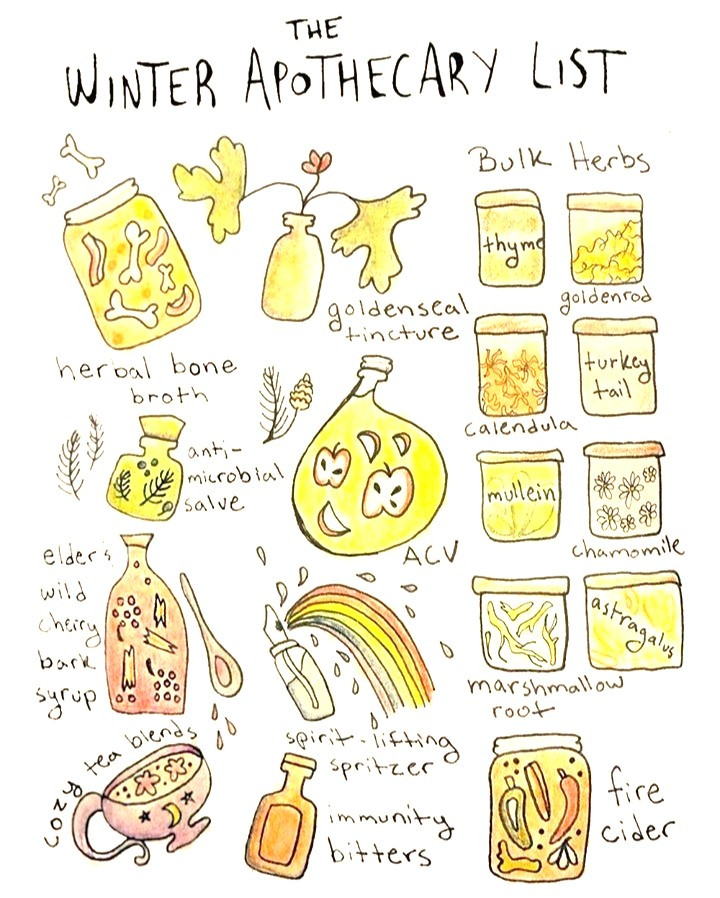 THE
WINTER APOTHECARY LIST
herbal bone
broth
goldenseal
tincture
anti-
microbial
salve
ACV
elder &
wild
cherry
bark
syrup
spirit-lifting
spritzer
tea blends
immunity
bitters
fire
cider
Bulk Herbs
thyme
goldenrod
calendula
turkey
tail
mullein
chamomile
marshmallow
root
astragalus